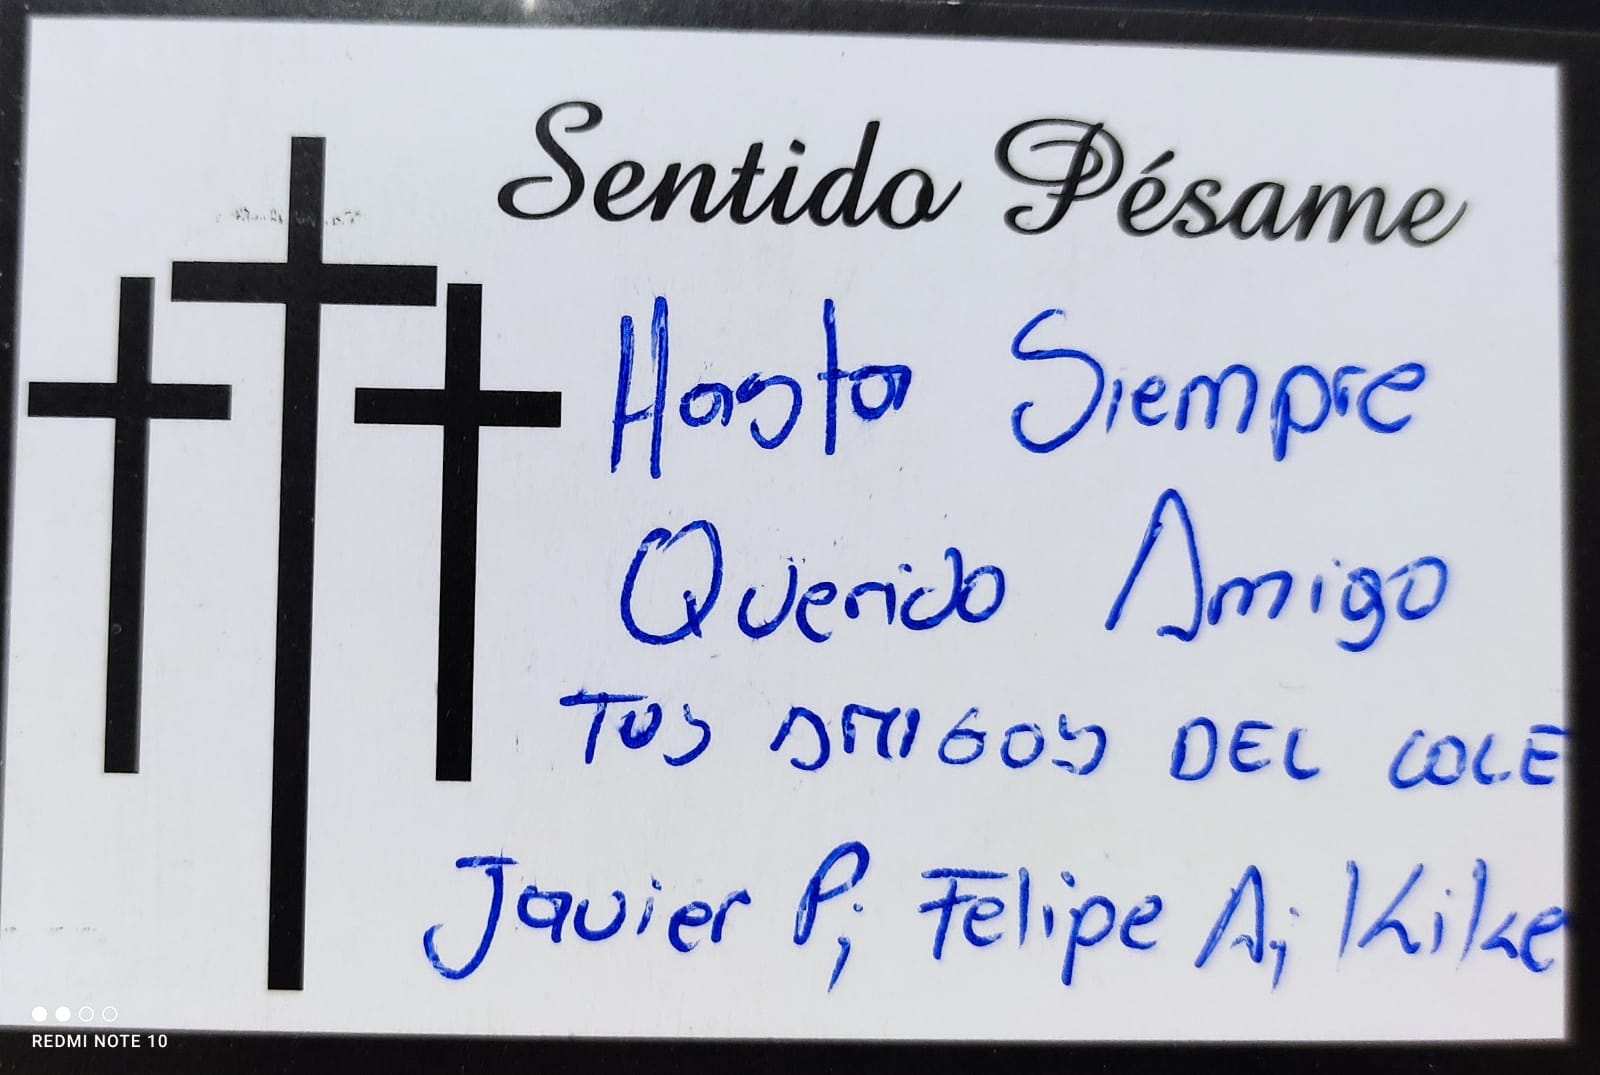 Sentido Pésame
Hasta Siempre
Querido Amigo
TUS AMIGOS DEL COLE
Javier P; Felipe A; Kike
REDMI NOTE 10